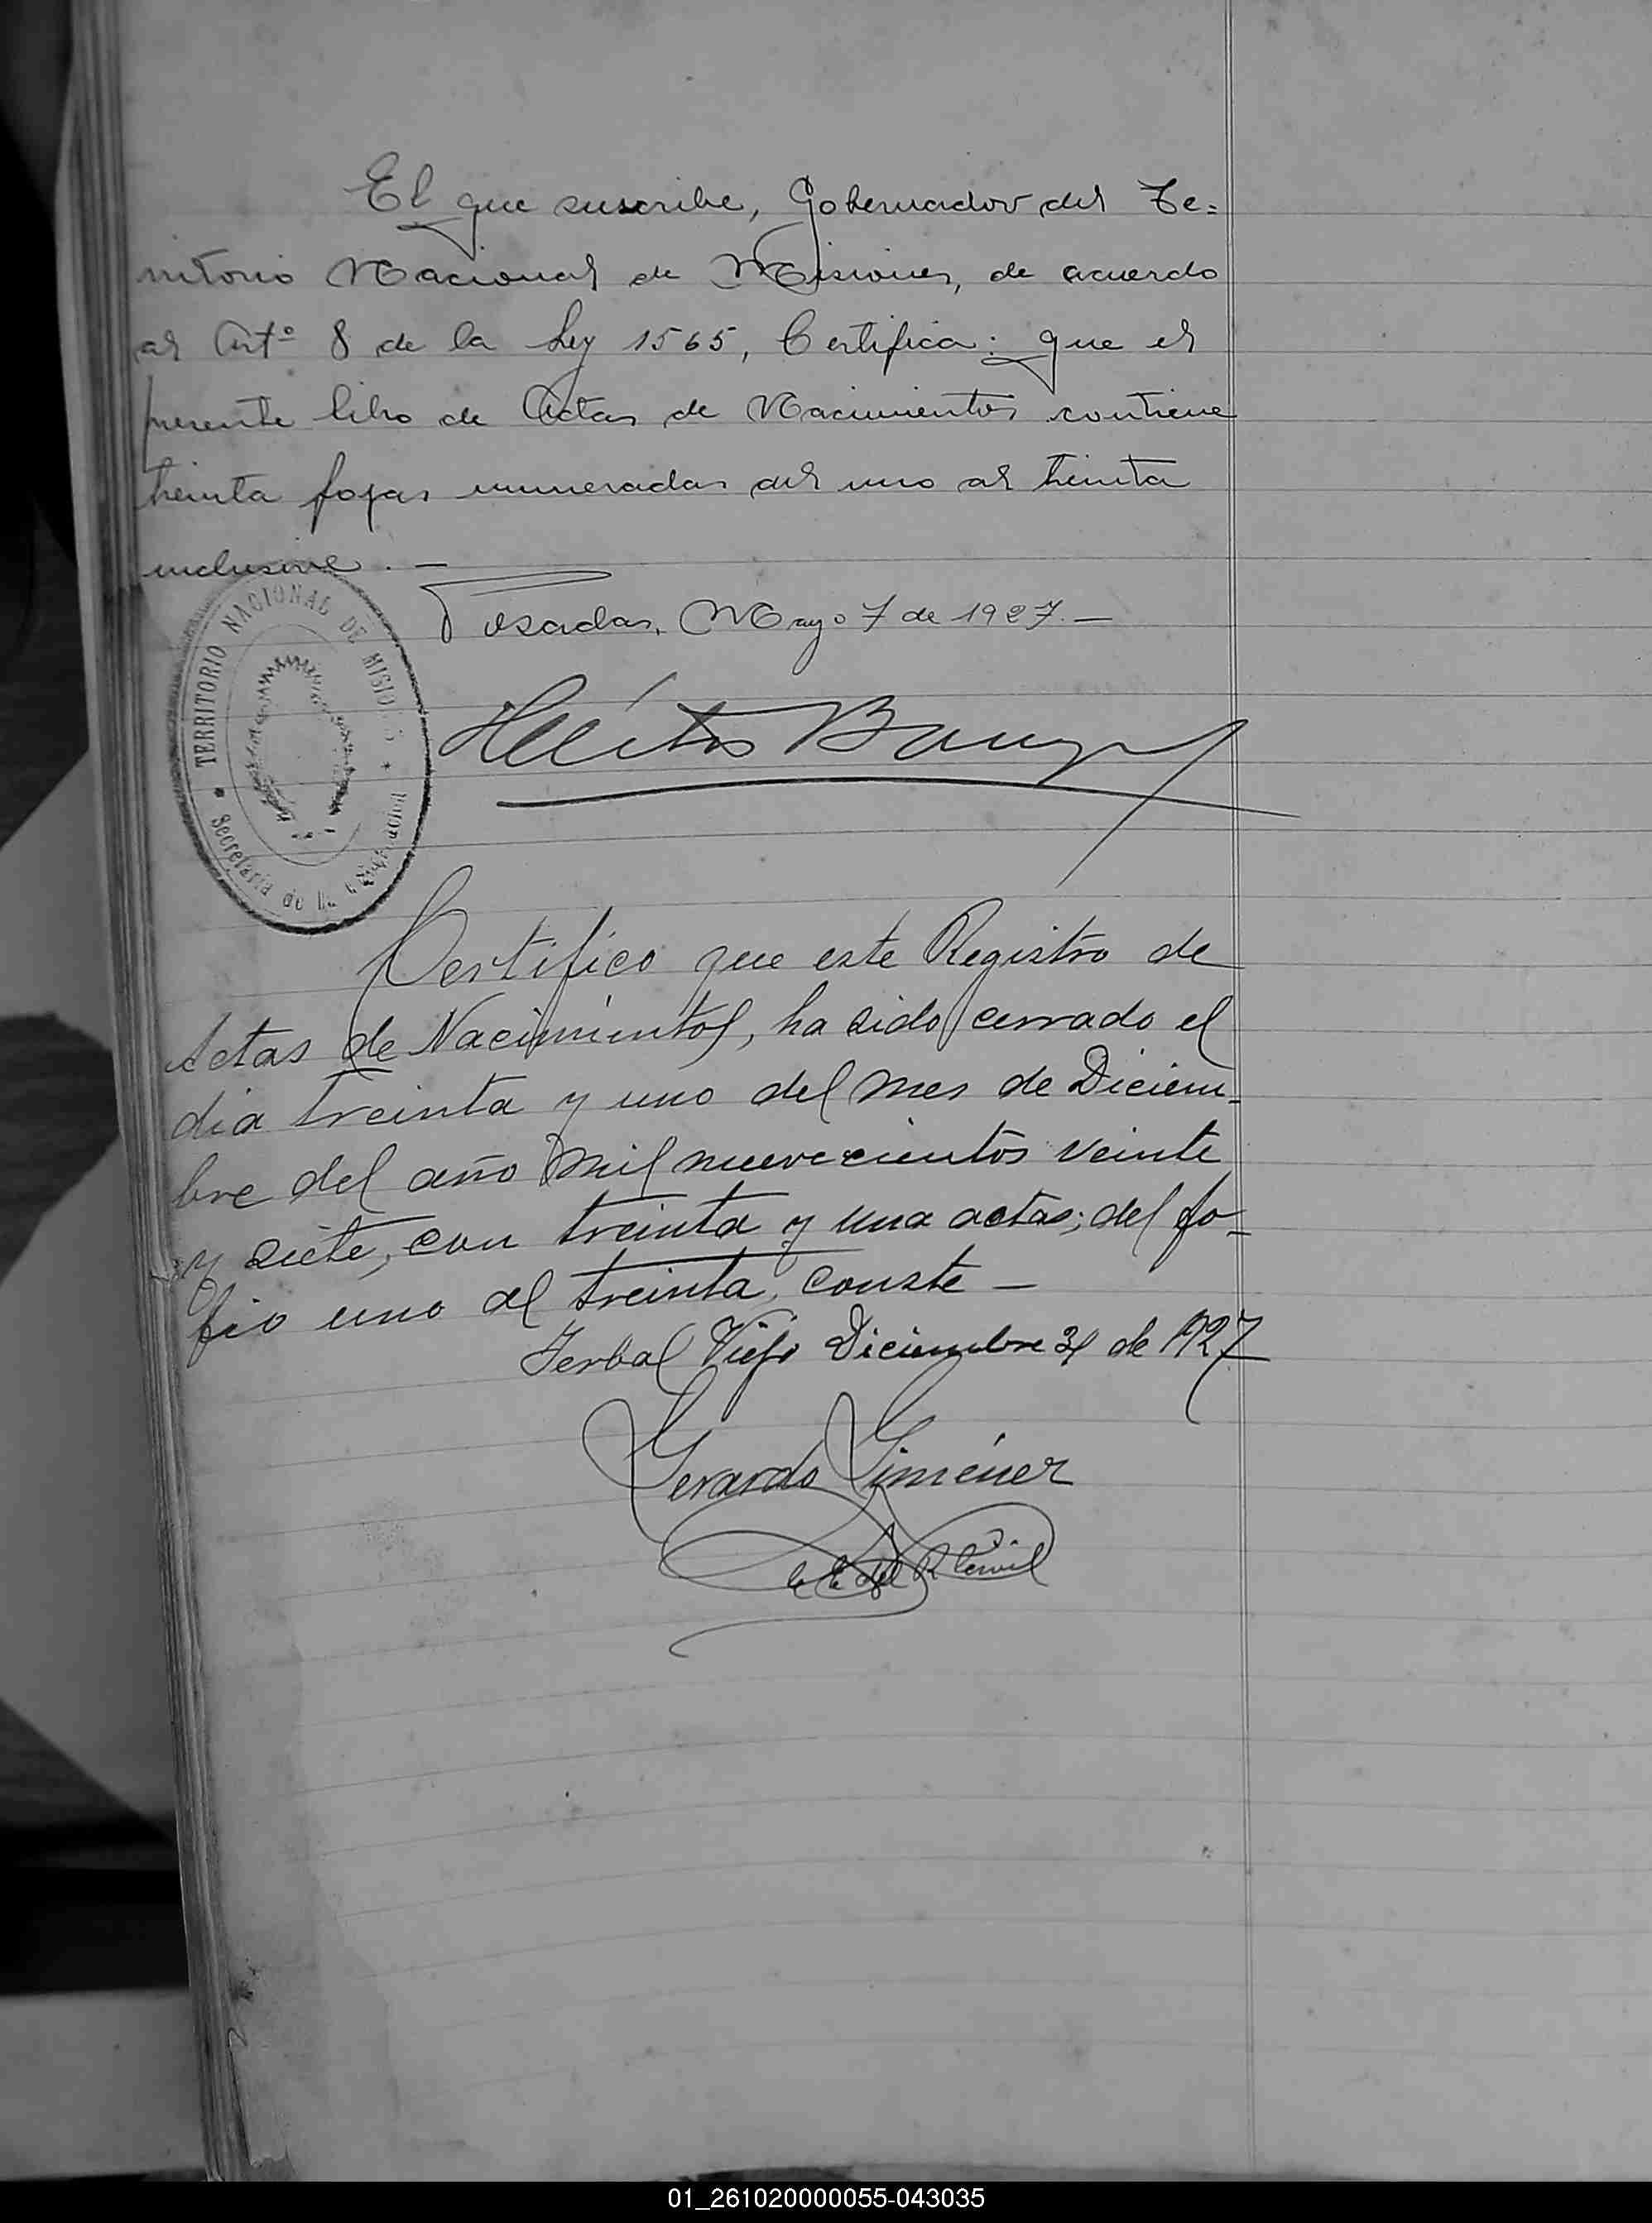 El que suscribe, Gobernador del Te=
rritorio Nacional de Misiones, de acuerdo
al Artº 8 de la Ley 1565, Certifica: que el
presente libro de Actas de Nacimientos contiene
treinta fojas numeradas del uno al treinta
inclusive. —
Posadas, Mayo 7 de 1927. —
TERRITORIO NACIONAL DE MISIONES
Secretaría de la Gobernación
Héctor Barreyro
Certifico que este Registro de
Actas de Nacimientos, ha sido cerrado el
dia treinta y uno del mes de Diciem-
bre del año mil nuevecientos veinte
y siete, con treinta y una actas; del fo-
fio uno al treinta, conste —
Yerbal Viejo Diciembre 31 de 1927
Gerardo Giménez
E. del R. Civil
01_261020000055-043035